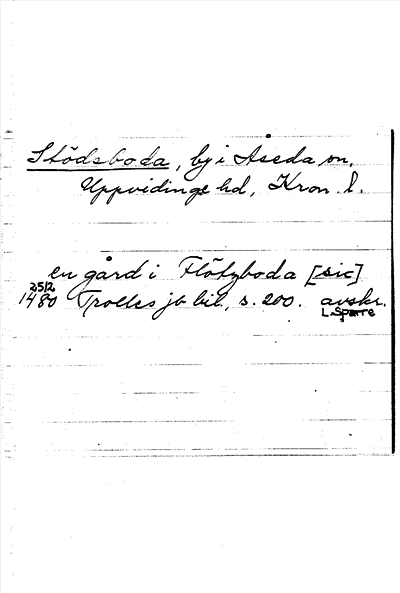 Stödsboda, by i Åseda sn,
Uppvidinge hd, Kron. l.
en gård i Flötzboda [sic]
25/2
1480 Trolles jb bil., s. 200. avskr.
L. Sparre